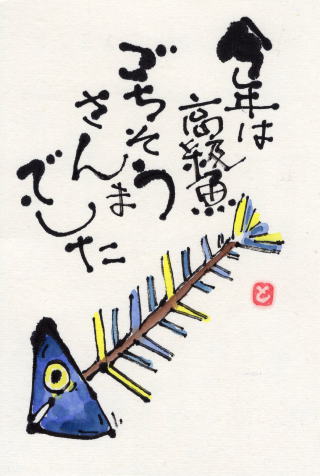 今年は
高級魚
ごちそう
さんま
でした
と